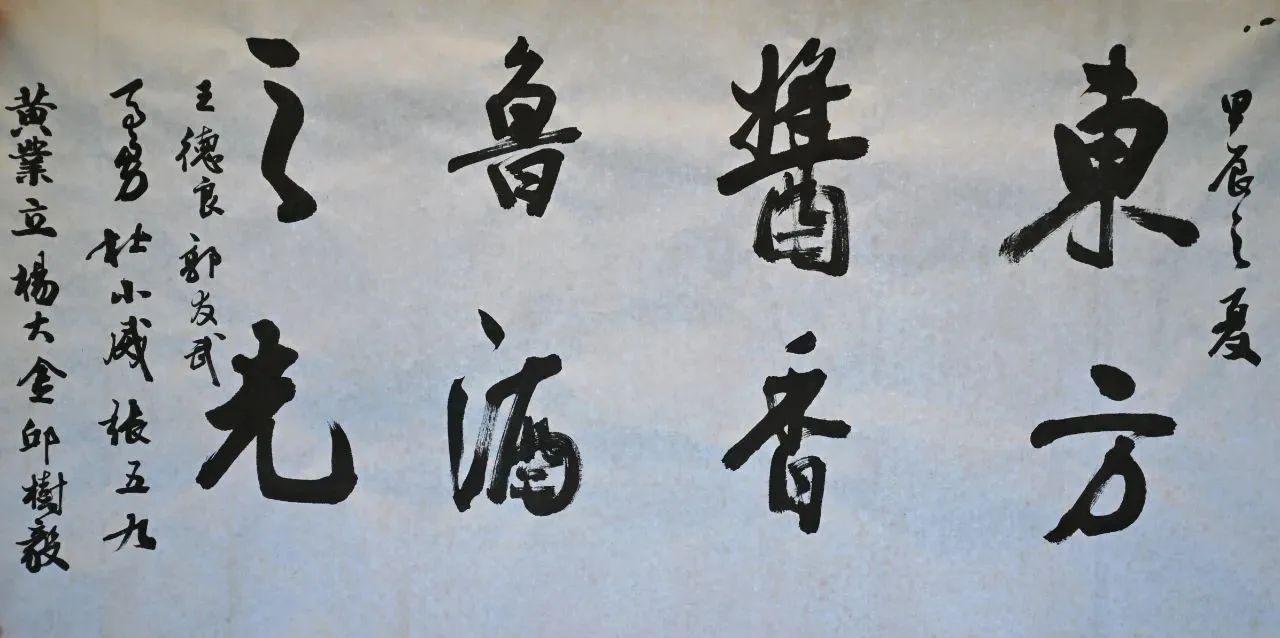 甲辰之夏
東方
醬香
魯酒
之光
王德良 郭友武
马勇 杜小威 張五九
黄業立 楊大金 邱樹毅